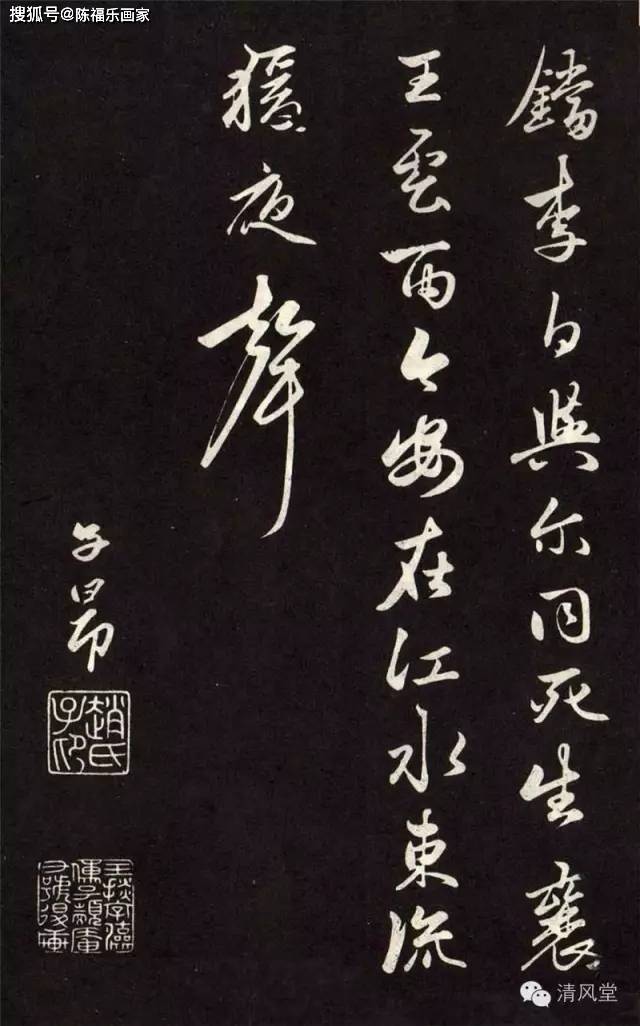 搜狐号@陈福乐画家
鐺李白與尔同死生襄
王雲雨今安在江水東流
猨夜聲
子昂
趙氏子印
清风堂